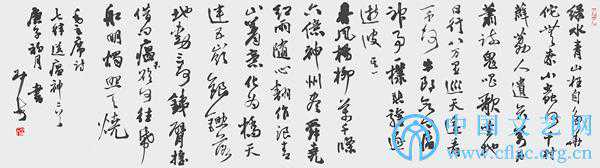 绿水青山枉自多華
佗無奈小蟲何千村
薜荔人遺矢萬户
萧疏鬼唱歌坐地
日行八万里巡天遥看
一千河牛郎欲问瘟
神事一樣悲歡逐
逝波 其二
春風楊柳萬千條
六億神州盡舜堯
红雨随心翻作浪青
山着意化为橋天
连五岭银锄落
地動三河铁臂摇
借问瘟君欲何往纸
船明烛照天烧
毛主席诗
七律送瘟神二首
庚子初月 书
中国文艺网
www.cflac.org.cn